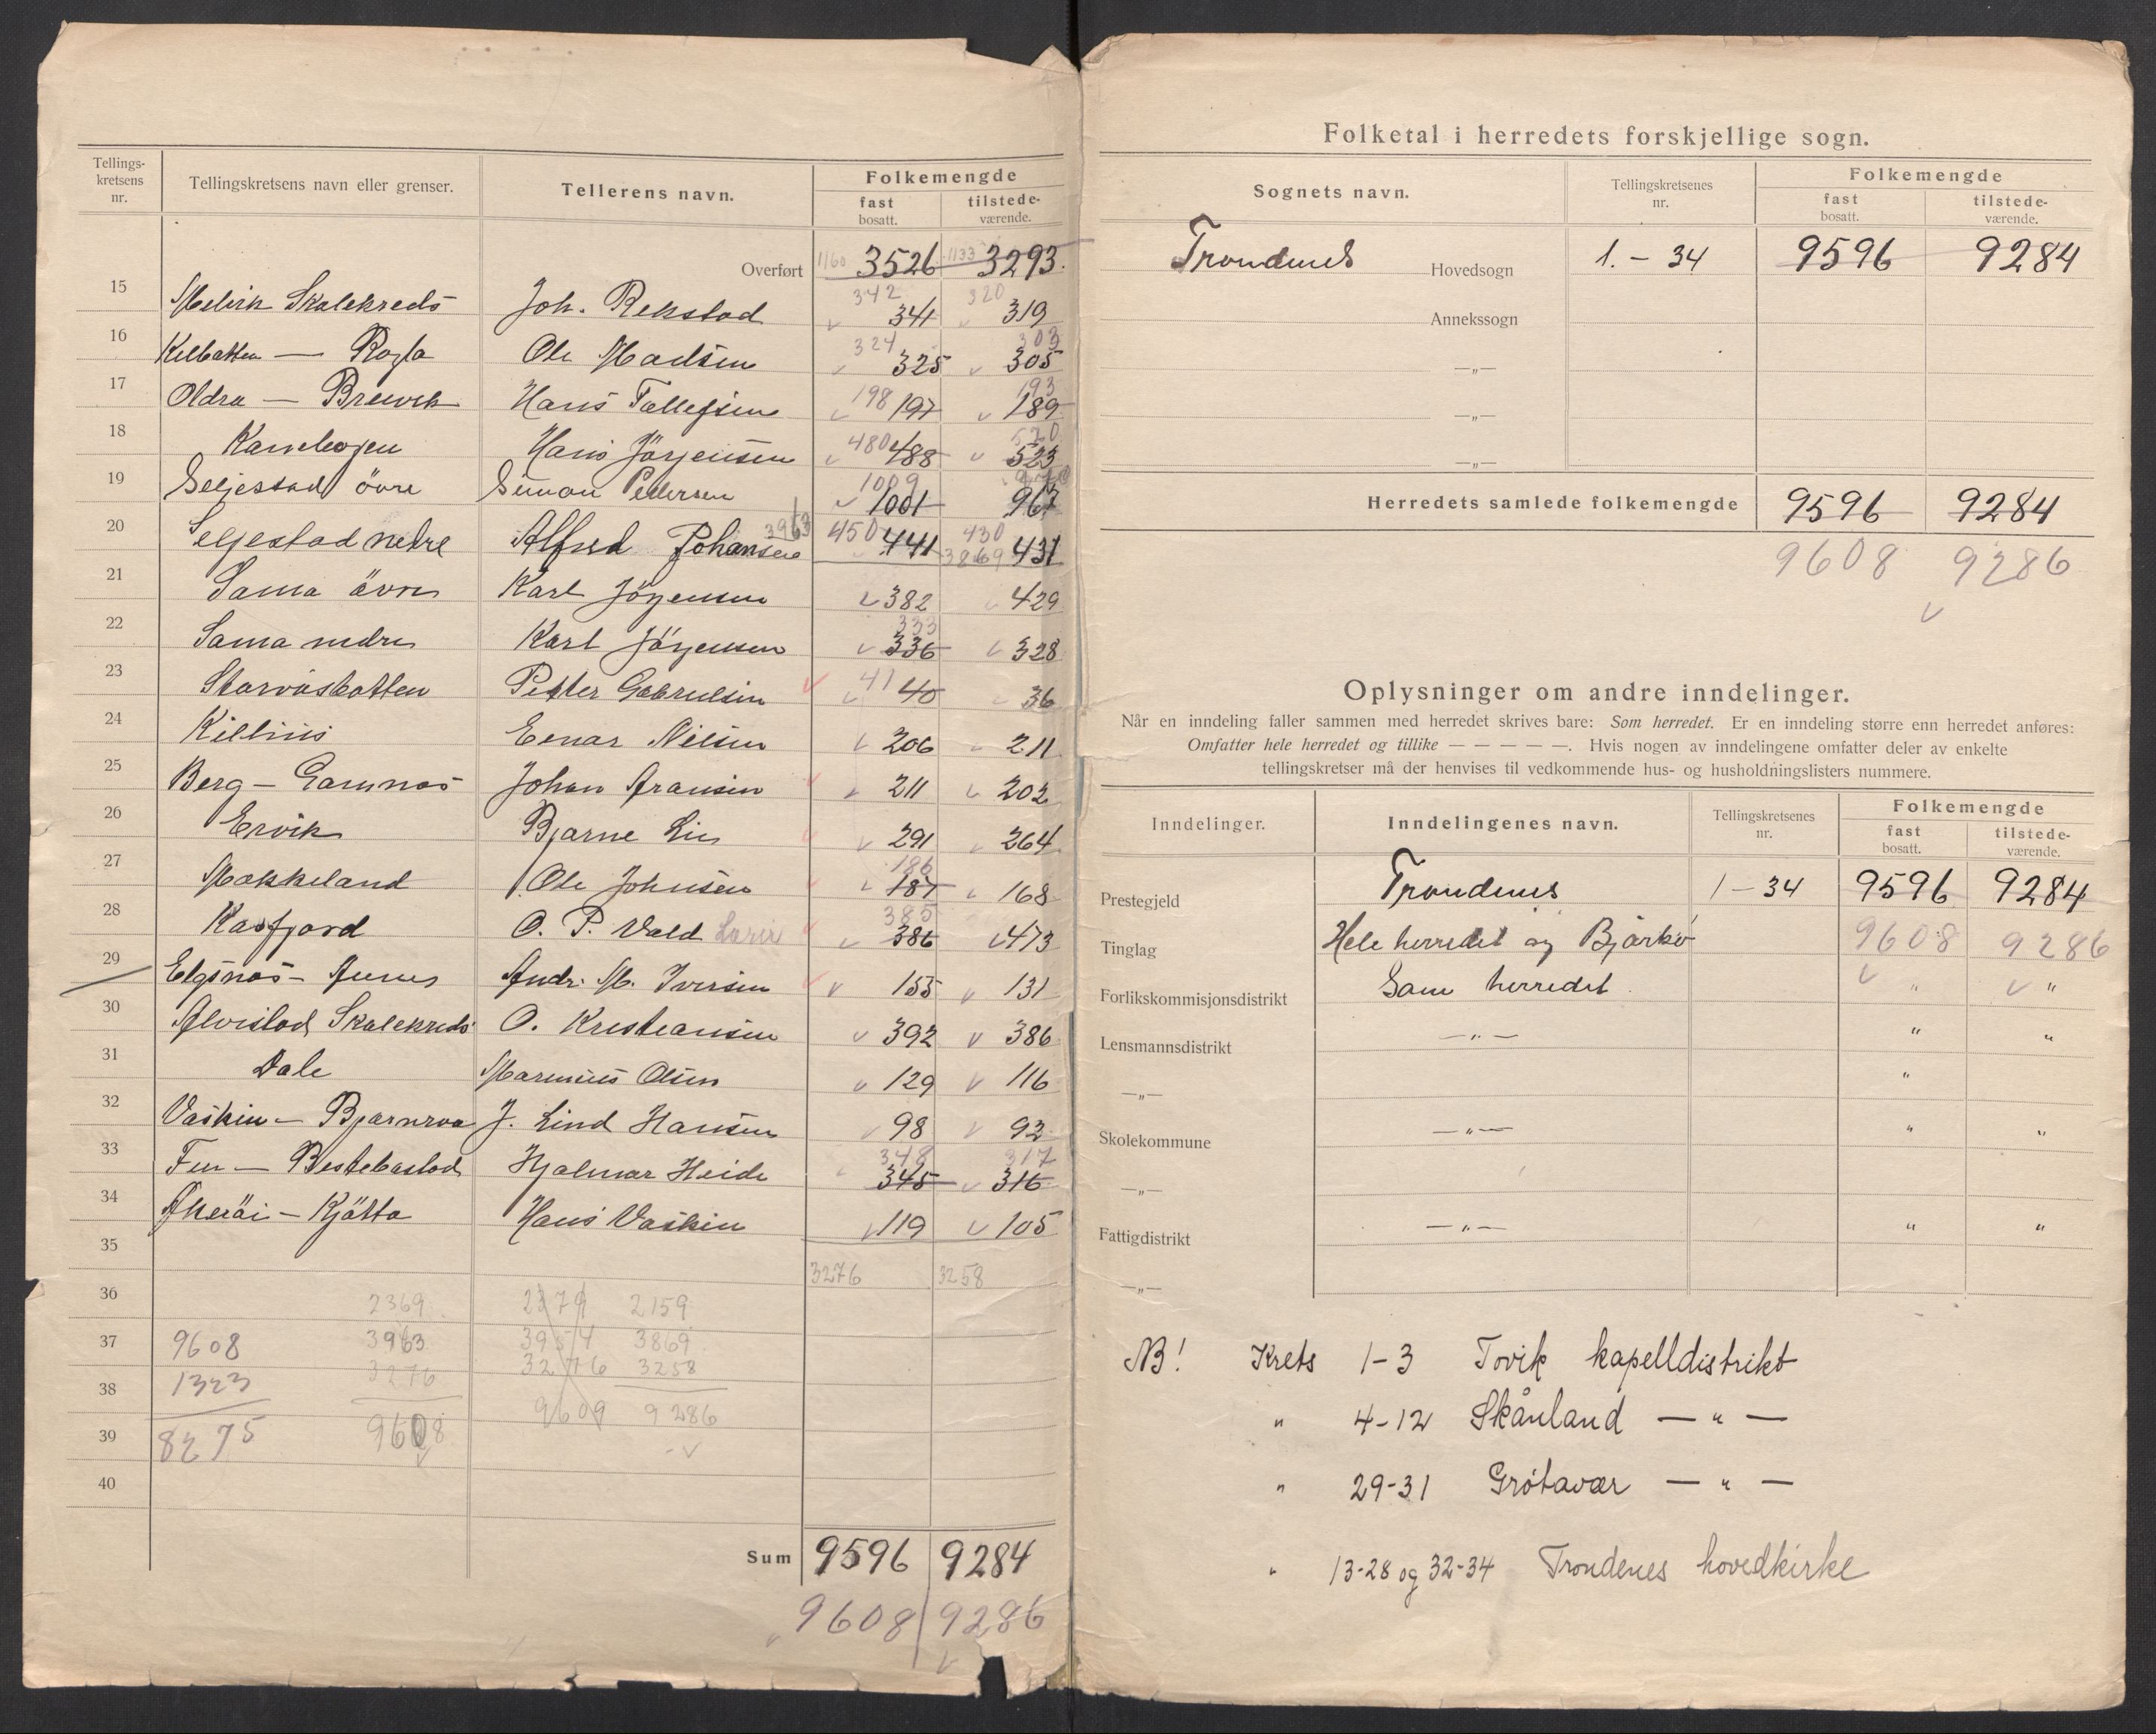 Tellings-
kretsens
nr.
Tellingskretsens navn eller grenser.
Tellerens navn.
Folkemengde
fast
bosatt.
tilstede-
værende.
Overført 1160 3526 1133 3293
342 320
15 Melvik Skolekreds Joh. Rekstad 341 319
324 303
16 Kilbotten — Rogla Ole Madsen 325 305
198 193
17 Oldra — Brevik Hans Tollefsen 197 189
480 520
18 Kanebogen Hans Jörgensen 488 523
1009
19 Seljestad övre Simon Pedersen 1001 967
3963 450 430
20 Seljestad nedre Alfred Johansen 441 3869 431
21 Sama övre Karl Jörgensen 382 429
333
22 Sama nedre Karl Jörgensen 336 328
23 Storvasbotten Petter Gabrielsen 41 40 36
24 Killiis Einar Nilsen 206 211
25 Berg — Gamnæs Johan Aransen 211 202
26 Ervik Bjarne Lie 291 264
186
27 Møkkeland Ole Johnsen 187 168
385
28 Kasfjord O. P. Vold 386 473
29 Elgsnæs — Aunes Andr. M. Iversen 155 131
30 Alvestad Skolekreds O. Kristiansen 392 386
31 Dale Marinius Olsen 129 116
32 Vaskin — Bjarnraa J. Lind Hansen 98 92
348 317
33 Fun — Bestebostad Hjalmar Heide 345 316
34 Akeröi — Kjötta Hans Vaskin 119 105
35
3276 3258
36 2369 2379 2159
37 9608 3963 3954 3869
3276 3276 3258
38 1323
9609 9286
39 8275 9608
40
Sum 9596 9284
9608 9286
Folketal i herredets forskjellige sogn.
Sognets navn.
Tellingskretsenes
nr.
Folkemengde
fast
bosatt.
tilstede-
værende.
Trondenes Hovedsogn 1. - 34 9596 9284
Annekssogn
—„—
—„—
—„—
Herredets samlede folkemengde 9596 9284
9608 9286
Oplysninger om andre inndelinger.
Når en inndeling faller sammen med herredet skrives bare: Som herredet. Er en inndeling større enn herredet anføres:
Omfatter hele herredet og tillike — — — — —. Hvis nogen av inndelingene omfatter deler av enkelte
tellingskretser må der henvises til vedkommende hus- og husholdningslisters nummere.
Inndelinger.
Inndelingenes navn.
Tellingskretsenes
nr.
Folkemengde
fast
bosatt.
tilstede-
værende.
Prestegjeld Trondenes 1 - 34 9596 9284
Tinglag Hele herredet og Bjarkö 9608 9286
Forlikskommisjonsdistrikt Som herredet " "
Lensmannsdistrikt — " — " "
—„— "
Skolekommune — " — " "
—„—
Fattigdistrikt — " — " "
—„—
NB! Krets 1-3 Tovik kapelldistrikt
" 4-12 Skånland — " —
" 29-31 Grötavær — " —
" 13-28 og 32-34 Trondenes hovedkirke